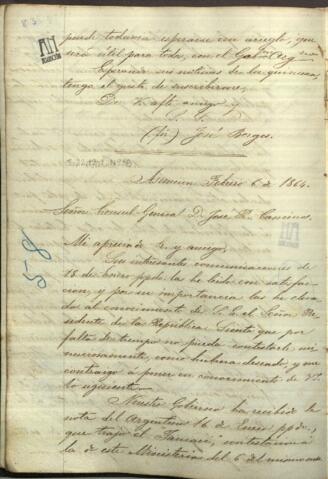 puede todavia esperarse un arreglo, que
será útil para todos, con el Gobno Arg
Esperando sus noticias de la quincena,
tengo el gusto de suscribirme,
D. V. aftº amigo y
S. S.
(fir) José Berges.
Asuncion Febrero 6 de 1864.
Señor Consul General D. José R. Caminos
Mi apreciado Sr. y amigo,
Sus interesantes comunicaciones de
18 de Enero ppdo. la he leido con satisfac-
cion, y por su importancia las he eleva-
do al conocimiento de S. E. el Señor Pre-
sidente de la Republica. Siento que por
falta de tiempo no pueda contestarle mi-
nuciosamente, como hubiera deseado, y me
contraigo á poner en conocimiento de V.
lo siguiente.
Nuestro Gobierno ha recibido la
nota del Argentino 16 de Enero ppdo.,
que trajo el "Paraná", contestacion á
la de este Ministerio del 6 del mismo
58